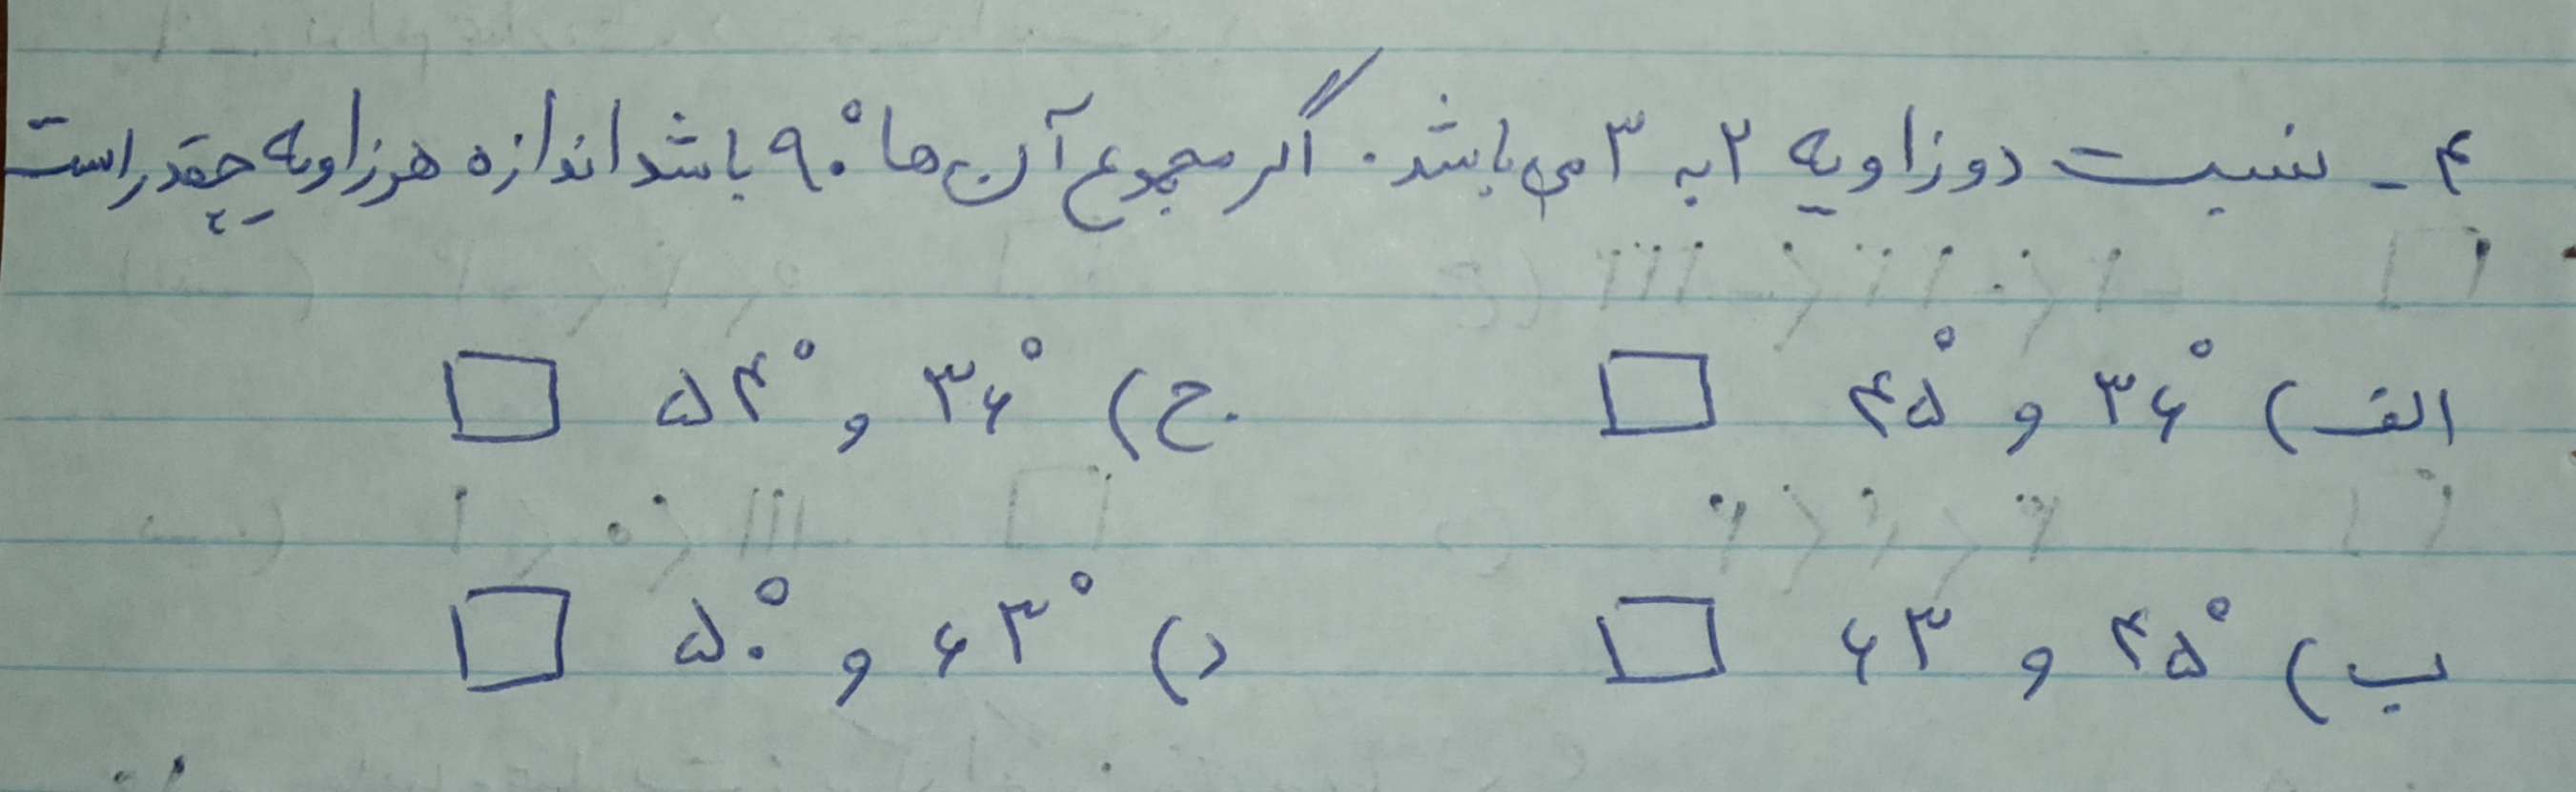 ۴ - نسبت دو زاویه ۲ به ۳ می باشد. اگر مجموع آن ها ۹۰° باشد اندازه هر زاویه چقدر است
الف) ۳۶° و ۴۵° ج) ۳۶° و ۵۴°
ب) ۴۵° و ۶۳ د) ۶۳° و ۵۰°